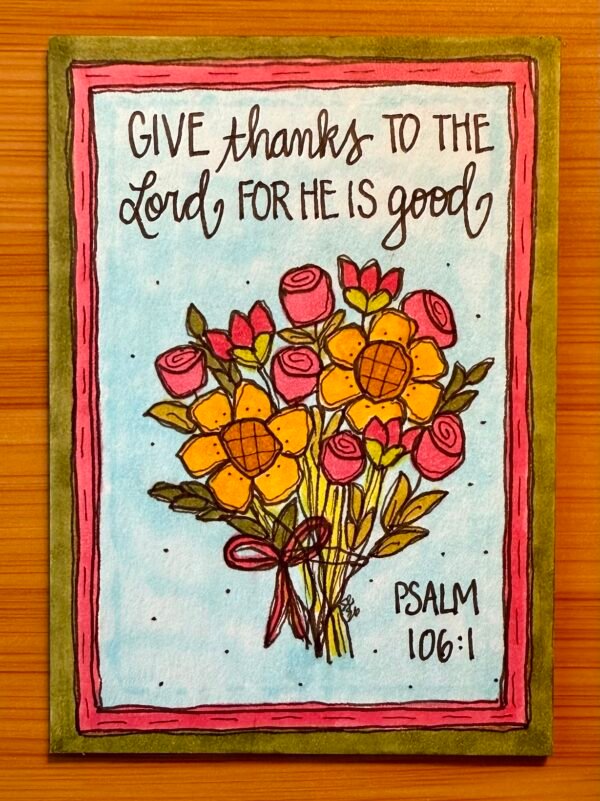 GIVE thanks TO THE
Lord FOR HE IS good
PSALM
106:1